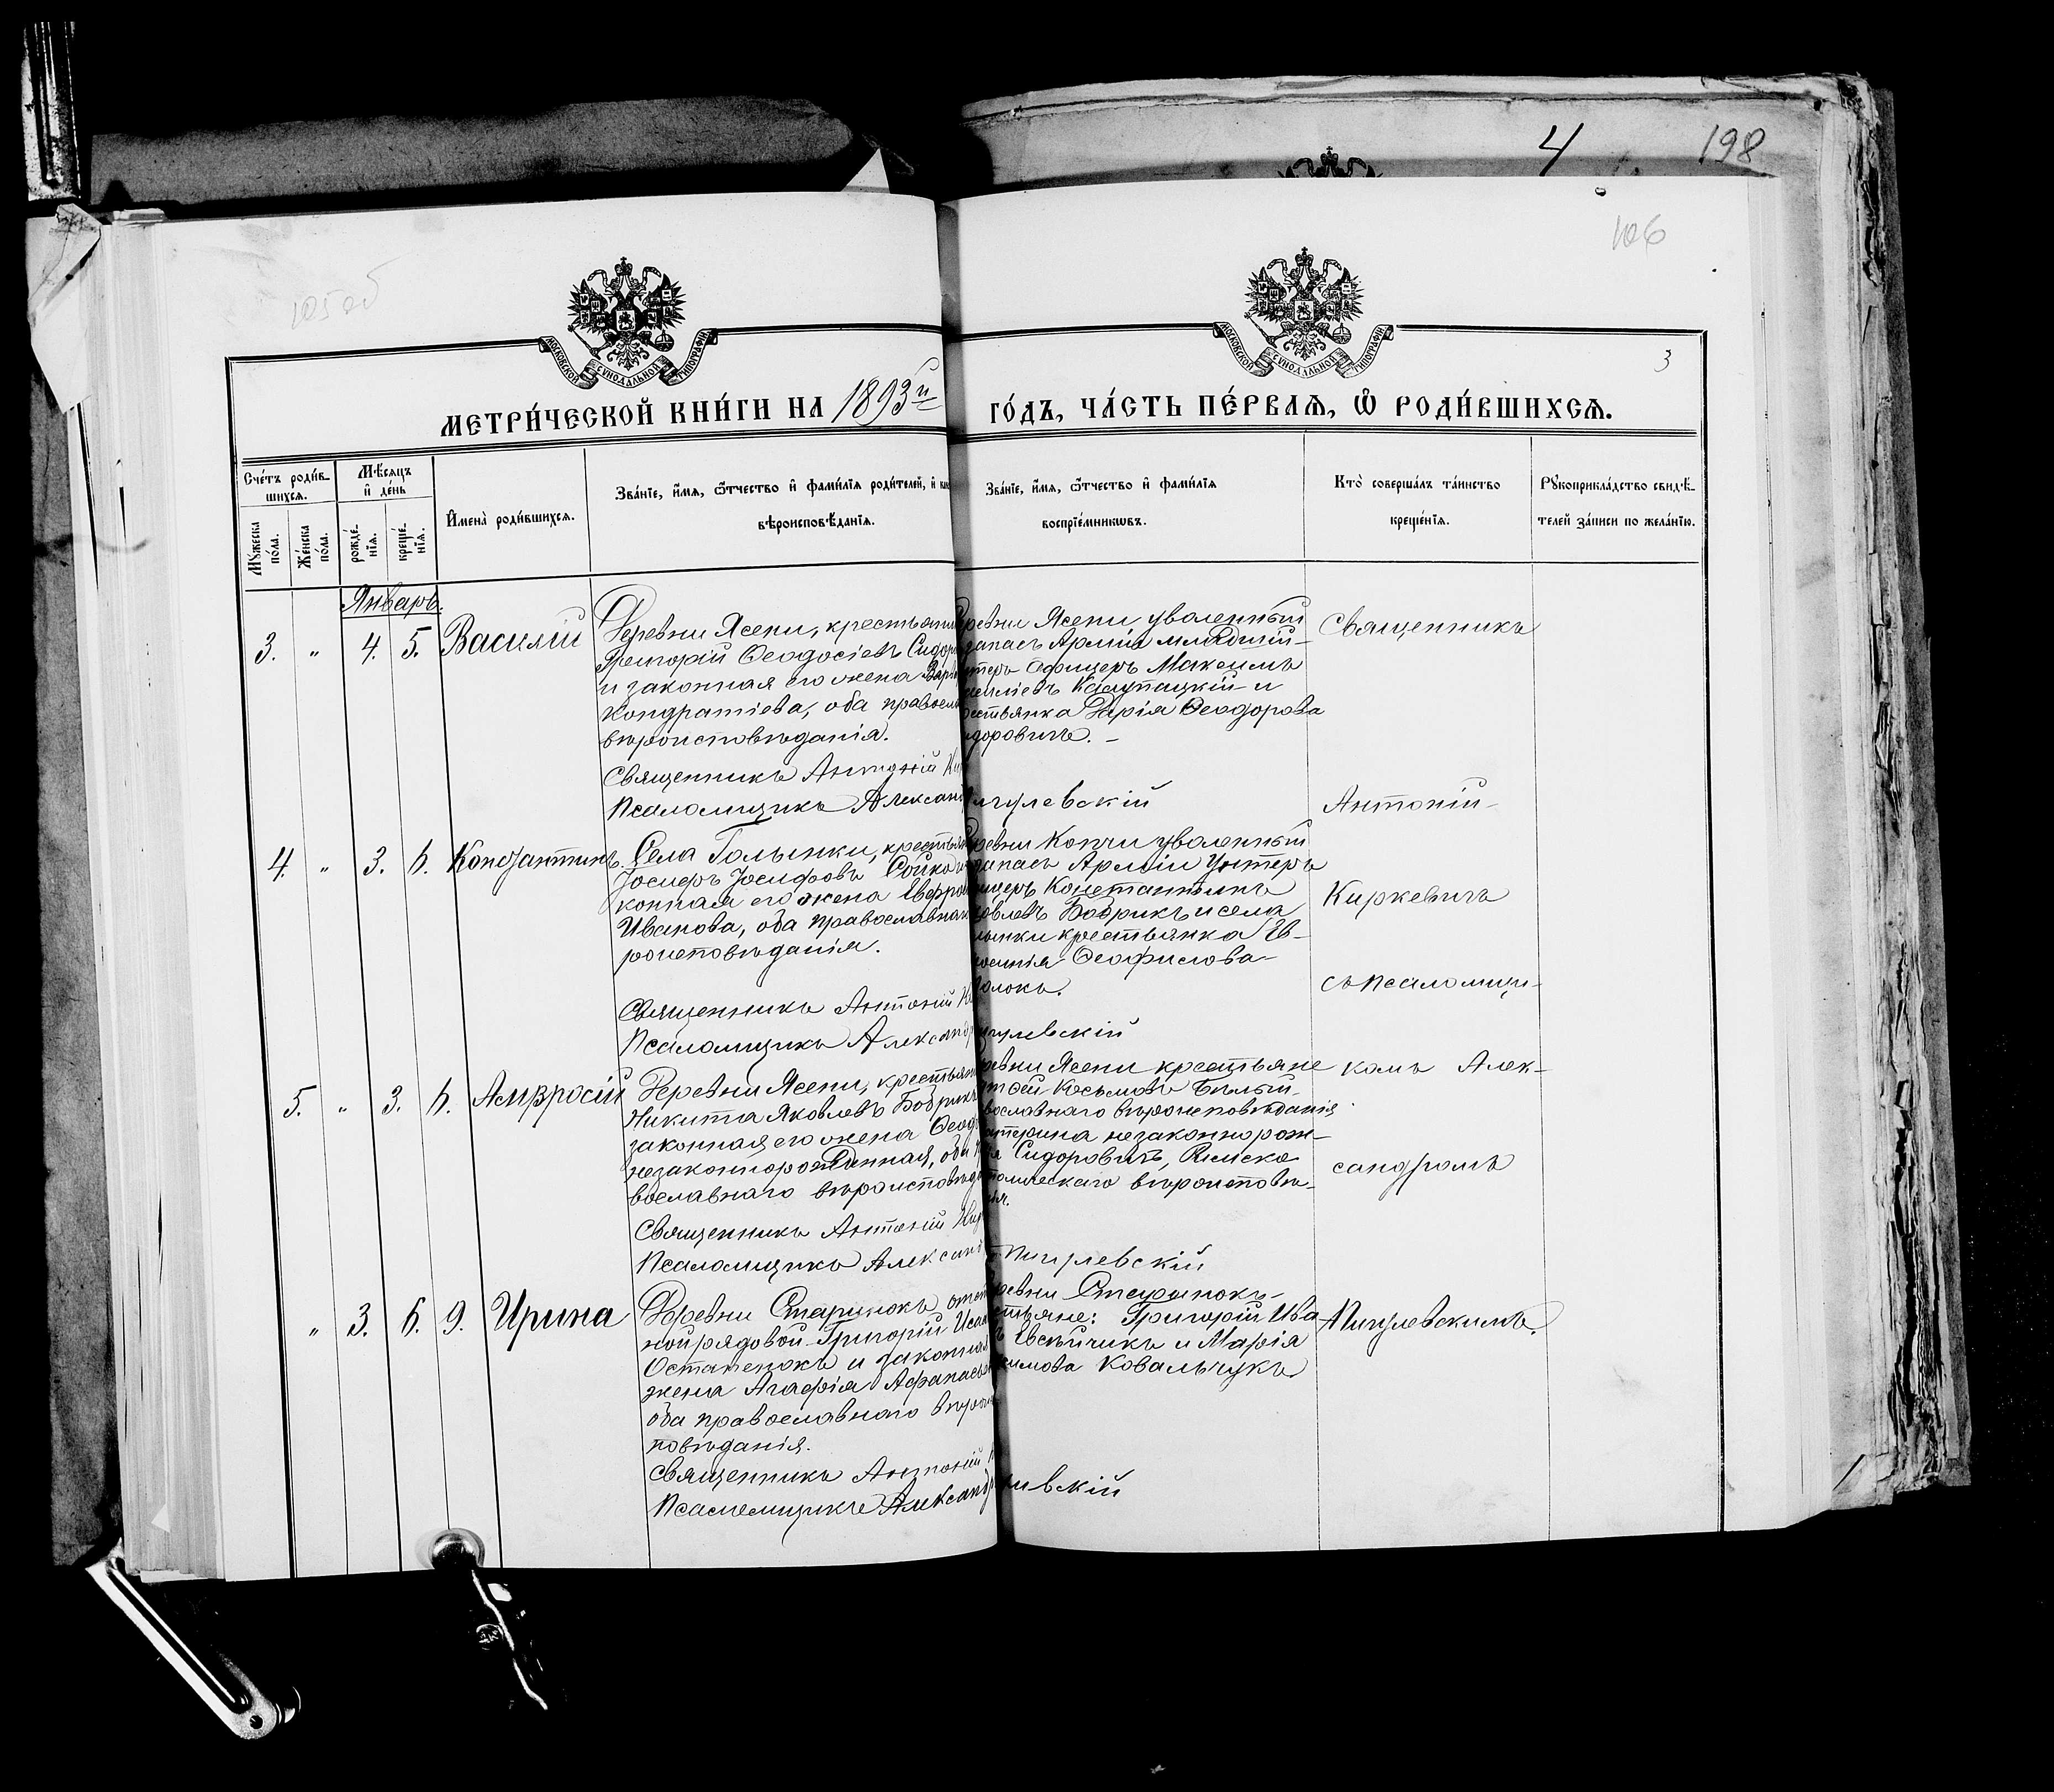 4 198
106
105 об
МОСКОВСКОЙ СУНОДАЛЬНОЙ ТИПОГРАФІИ
МОСКОВСКОЙ СУНОДАЛЬНОЙ ТИПОГРАФІИ
3
МЕТРИ́ЧЕСКОЙ КНИ́ГИ НА 1893й ГО́ДЪ, ЧА́СТЬ ПЕ́РВАѦ, Ѡ РОДИ́ВШИХСѦ.
Сче́тъ роди́в-
шихсѧ.
Мѣ́сѧцъ
и де́нь
Мꙋжеска
по́ла.
Же́нска
по́ла.
рожде́-
нїѧ.
креще́-
нїѧ.
Имена̀ роди́вшихсѧ.
Зва́нїе, и́мѧ, ѻ҆́тчество и҆ фами́лїѧ роди́телей, и҆ как
вѣроисповѣ́данїѧ.
Зва́нїе, и́мѧ, ѻ҆́тчество и҆ фами́лїѧ
воспрїе́мникѡвъ.
Кто̀ соверша́лъ та́инство
креще́нїѧ.
Рꙋкоприкла́дство свидѣ́-
телей за́писи по жела́нїю.
Январь.
3. " 4. 5. Василій
Деревни Ясени, крестьяни
Григорій Ѳеодосіевъ Сидор
и законная его жена Варв
Кондратіева, оба правосла
вѣроисповѣданія.
Священникъ Антоній Ки
Псаломщикъ Александ
ревни Ясени уволенный
запасъ Арміи младшій
нтеръ Офицеръ Максимъ
силіевъ Калупацкій и
рестьянка Дарія Ѳеодорова
доровичъ.
игулевскій
Священникъ
Антоній
4. " 3. 6. Константинъ
Села Голынки, крестья
Іосифъ Іосифовъ Сойко и
конная его жена Евфро
Иванова, оба православна
роисповѣданія.
Священникъ Антоній Ки
Псаломщикъ Александр
ревни Копчи уволенный
запасъ Арміи Унтеръ
ицеръ Константинъ
ковлевъ Бобрикъ и села
лынки крестьянка Ев-
Ѳеофилова
олокъ.
игулевскій
Киркевичъ
съ псаломщи-
5. " 3. 6. Амвросій
Деревни Ясени, крестьян
Никита Яковлевъ Бобрикъ
законная его жена Ѳеод
незаконнорожденная, оба п
вославнаго вѣроисповѣд
Священникъ Антоній Кир
Псаломщикъ Александ
ревни Ясени крестьяне
Косьмовъ Бѣлый
вославнаго вѣроисповѣданія
атерина незаконнорож-
Сидоровичъ, Римско
толическаго вѣроисповѣ-
нія.
Пигулевскій
комъ Алек-
сандромъ
" 3. 6. 9. Ирина
Деревни Старинокъ отста
ной рядовой Григорій Исаа
Остапенокъ и законная
жена Агафія Афанасье
оба православнаго вѣроис
повѣданія.
Священникъ Антоній К
Псаломщикъ Александ
ревни Старинокъ
стьяне: Григорій Ива
ъ Евсѣйчикъ и Марія
кимова Ковальчукъ
левскій
Пигулевскимъ.